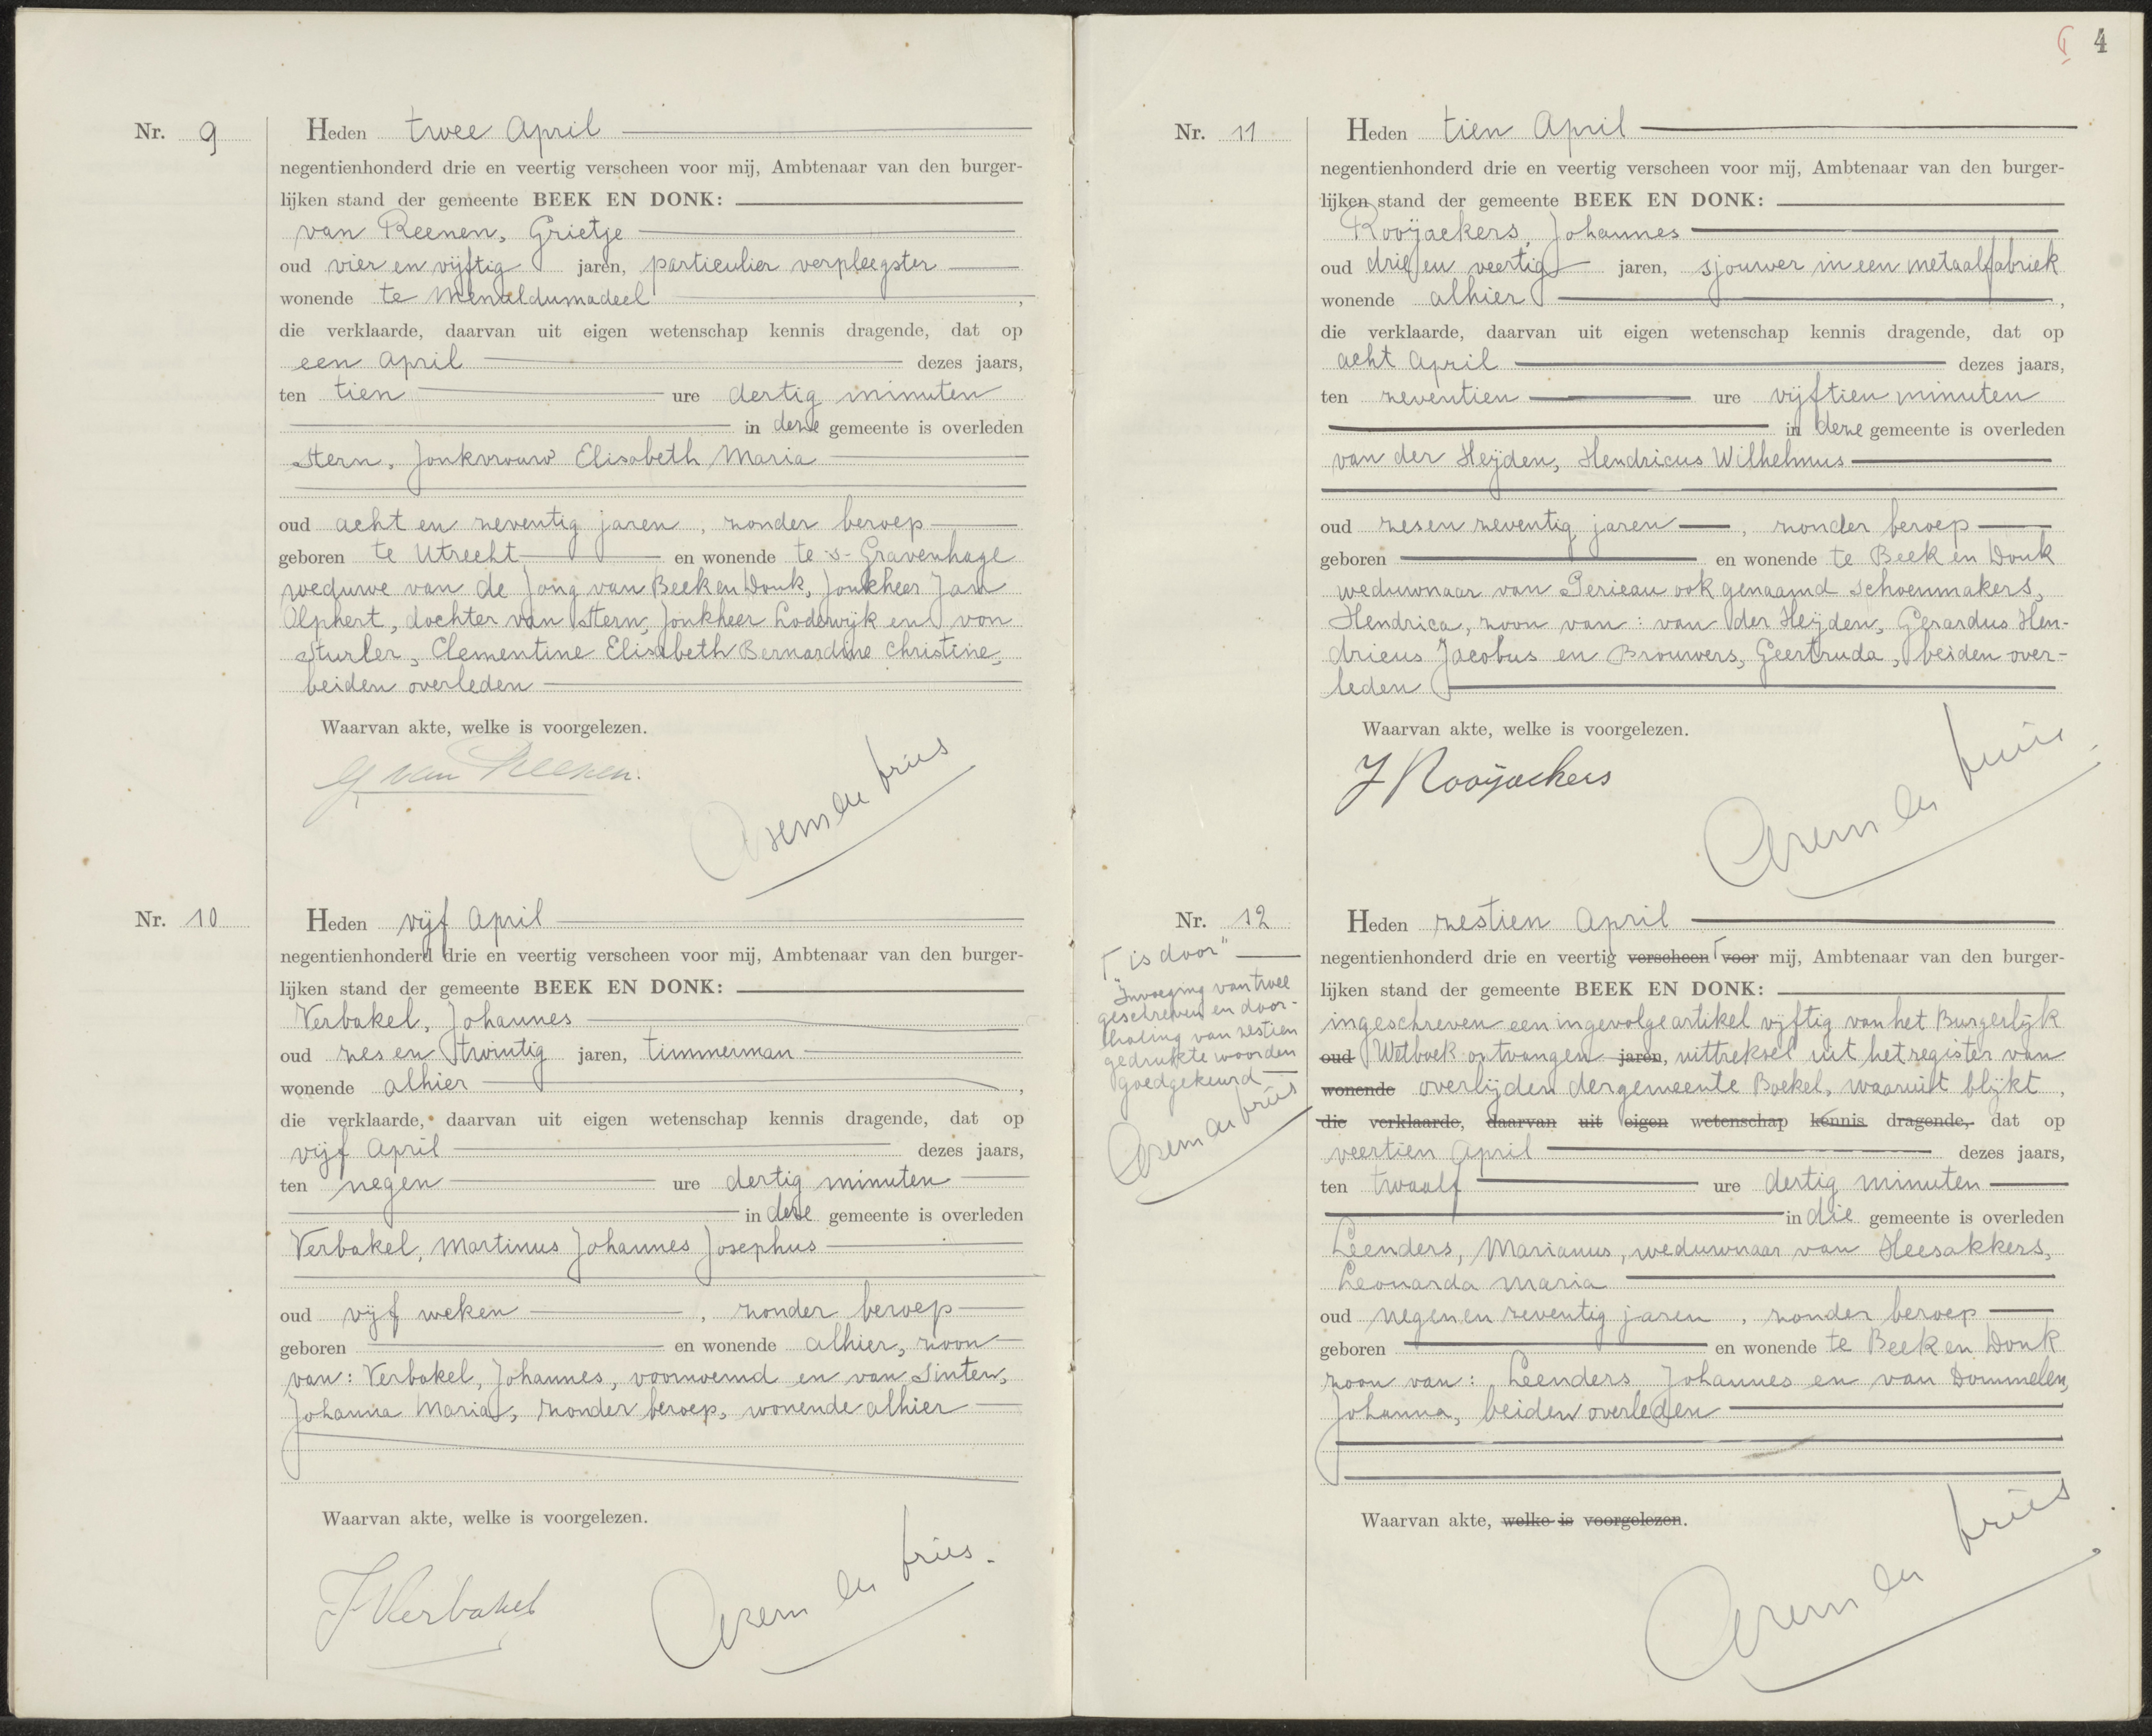 4
Nr. 9
Heden twee April
negentienhonderd drie en veertig verscheen voor mij, Ambtenaar van den burger-
lijken stand der gemeente BEEK EN DONK:
van Reenen, Grietje
oud vier en vijftig jaren, particulier verpleegster
wonende te Menaldumadeel,
die verklaarde, daarvan uit eigen wetenschap kennis dragende, dat op
een April dezes jaars,
ten tien ure dertig minuten
in deze gemeente is overleden
Stern, Jonkvrouw Elisabeth Maria
oud acht en zeventig jaren, zonder beroep
geboren te Utrecht en wonende te 's-Gravenhage
weduwe van de Jong van Beek en Donk, Jonkheer Jan
Alphert, dochter van Stern, Jonkheer Lodewijk en von
Sturler, Clementine Elisabeth Bernardine Christine,
beiden overleden
Waarvan akte, welke is voorgelezen.
G van Reenen.
Nr. 10
Heden vijf April
negentienhonderd drie en veertig verscheen voor mij, Ambtenaar van den burger-
lijken stand der gemeente BEEK EN DONK:
Verbakel, Johannes
oud zes en twintig jaren, timmerman
wonende alhier,
die verklaarde, daarvan uit eigen wetenschap kennis dragende, dat op
vijf April dezes jaars,
ten negen ure dertig minuten
in deze gemeente is overleden
Verbakel, Martinus Johannes Josephus
oud vijf weken, zonder beroep
geboren en wonende alhier, zoon
van: Verbakel, Johannes, voornoemd en van Sinten,
Johanna Maria, zonder beroep, wonende alhier
Waarvan akte, welke is voorgelezen.
J Verbakel
Nr. 11
Heden tien April
negentienhonderd drie en veertig verscheen voor mij, Ambtenaar van den burger-
lijken stand der gemeente BEEK EN DONK:
Rooijackers, Johannes
oud drie en veertig jaren, sjouwer in een metaalfabriek
wonende alhier,
die verklaarde, daarvan uit eigen wetenschap kennis dragende, dat op
acht April dezes jaars,
ten zeventien ure vijftien minuten
in deze gemeente is overleden
van der Heijden, Hendricus Wilhelmus
oud zes en zeventig jaren, zonder beroep
geboren en wonende te Beek en Donk
weduwnaar van Perieau ook genaamd Schoenmakers,
Hendrica, zoon van: van der Heijden, Gerardus Hen-
dricus Jacobus en Brouwers, Geertruda, beiden over-
leden
Waarvan akte, welke is voorgelezen.
J Rooijackers
Nr. 12
"is door"
Invoeging van twee
geschreven en door-
haling van zestien
gedrukte woorden
goedgekeurd
Heden zestien April
negentienhonderd drie en veertig verscheen voor mij, Ambtenaar van den burger-
lijken stand der gemeente BEEK EN DONK:
ingeschreven een ingevolge artikel vijftig van het Burgerlijk
oud Wetboek ontvangen jaren, uittreksel uit het register van
wonende overlijden der gemeente Boekel, waaruit blijkt,
die verklaarde, daarvan uit eigen wetenschap kennis dragende, dat op
veertien April dezes jaars,
ten twaalf ure dertig minuten
in die gemeente is overleden
Leenders, Marianus, weduwnaar van Heesakkers,
Leonarda Maria
oud negen en zeventig jaren, zonder beroep
geboren en wonende te Beek en Donk
zoon van: Leenders Johannes en van Dommelen,
Johanna, beiden overleden
Waarvan akte, welke is voorgelezen.